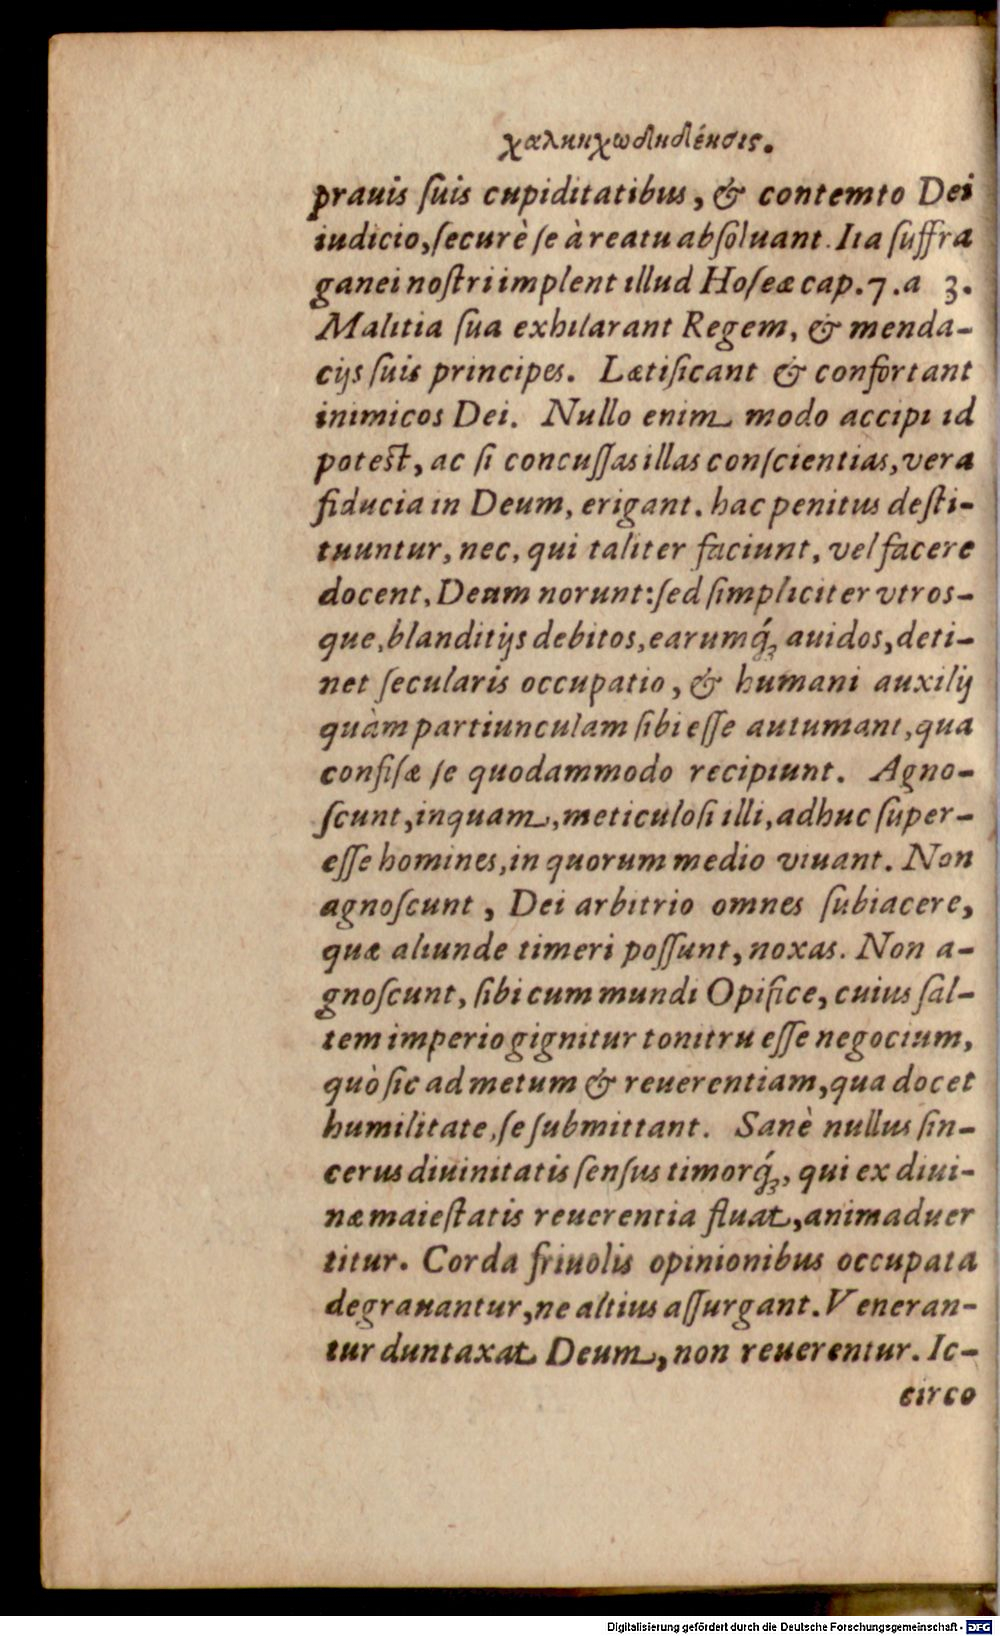 χαληκχωδηδίεησις.
prauis ſuis cupiditatibus, & contemto Dei
iudicio, ſecurè ſe à reatu abſoluant. Ita ſuffra
ganei noſtri implent illud Hoſeæ cap. 7. a 3.
Malitia ſua exhilarant Regem, & menda-
cijs ſuis principes. Lætificant & confortant
inimicos Dei. Nullo enim modo accipi id
poteſt, ac ſi concuſſas illas conſcientias, vera
fiducia in Deum, erigant. hac penitus deſti-
tuuntur, nec, qui taliter faciunt, vel facere
docent, Deum norunt: ſed ſimpliciter vtros-
que, blanditijs debitos, earumq́ꝫ auidos, deti-
net ſecularis occupatio, & humani auxilij
quàm partiunculam ſibi eſſe autumant, qua
confiſæ ſe quodammodo recipiunt. Agno-
ſcunt, inquam, meticuloſi illi, adhuc ſuper-
eſſe homines, in quorum medio viuant. Non
agnoſcunt, Dei arbitrio omnes ſubiacere,
quæ aliunde timeri poſſunt, noxas. Non a-
gnoſcunt, ſibi cum mundi Opifice, cuius ſal-
tem imperio gignitur tonitru eſſe negocium,
quò ſic ad metum & reuerentiam, qua docet
humilitate, ſe ſubmittant. Sanè nullus ſin-
cerus diuinitatis ſenſus timorq́ꝫ, qui ex diui-
næ maieſtatis reuerentia fluat, animaduer
titur. Corda friuolis opinionibus occupata
degrauantur, ne altius aſſurgant. Veneran-
tur duntaxat Deum, non reuerentur. Ic-
circo
Digitalisierung gefördert durch die Deutsche Forschungsgemeinschaft - DFG